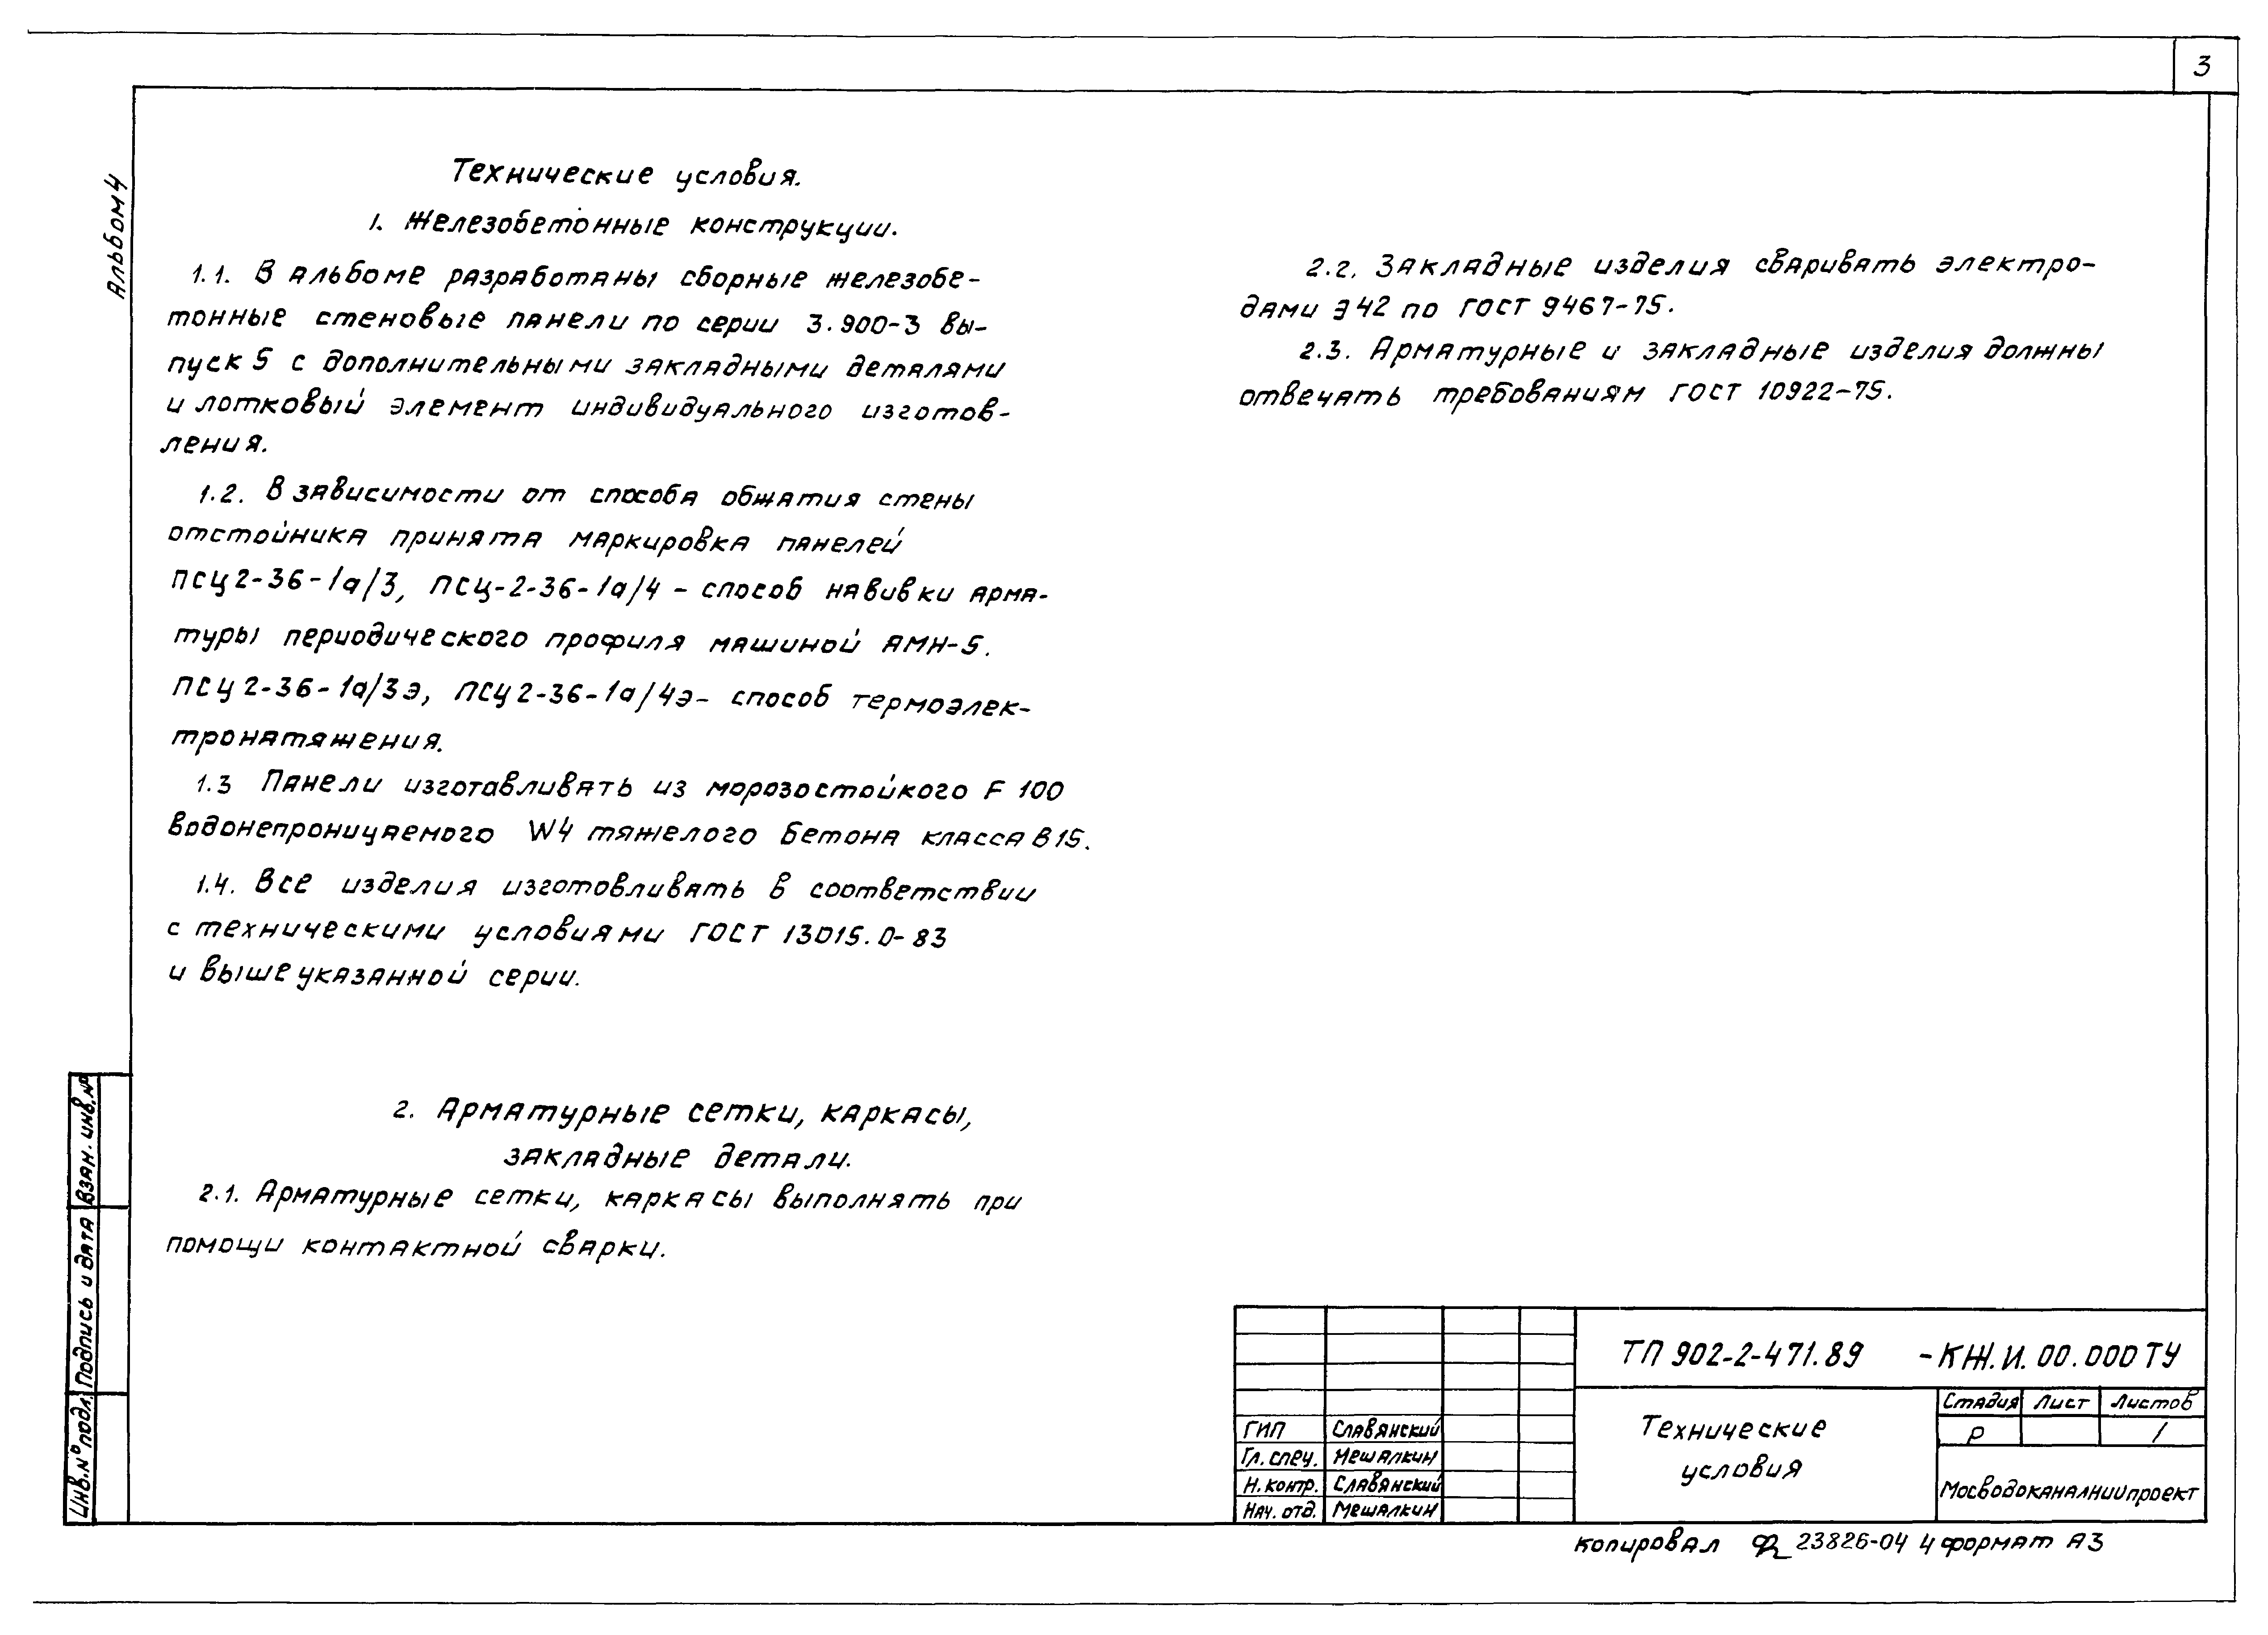 3
Альбом 4
Технические условия.
1. Железобетонные конструкции.
1.1. В альбоме разработаны сборные железобе-
тонные стеновые панели по серии 3.900-3 вы-
пуск 5 с дополнительными закладными деталями
и лотковый элемент индивидуального изготов-
ления.
1.2. В зависимости от способа обжатия стены
отстойника принята маркировка панелей
ПСЦ2-36-1а/3, ПСЦ-2-36-1а/4 - способ навивки арма-
туры периодического профиля машиной АМН-5.
ПСЦ2-36-1а/3э, ПСЦ2-36-1а/4э- способ термоэлек-
тронатяжения.
1.3 Панели изготавливать из морозостойкого F 100
водонепроницаемого W4 тяжелого бетона класса В15.
1.4. Все изделия изготовливать в соответствии
с техническими условиями ГОСТ 13015.0-83
и вышеуказанной серии.
2. Арматурные сетки, каркасы,
закладные детали.
2.1. Арматурные сетки, каркасы выполнять при
помощи контактной сварки.
2.2. Закладные изделия сваривать электро-
дами Э42 по ГОСТ 9467-75.
2.3. Арматурные и закладные изделия должны
отвечать требованиям ГОСТ 10922-75.
Взам. инв. №
Подпись и дата
Инв. № подл.
ТП 902-2-471.89 -КЖ.И. 00.000 ТУ
ГИП Славянский
Гл. спец. Мешалкин
Н. контр. Славянский
Нач. отд. Мешалкин
Технические
условия
Стадия Лист Листов
Р 1
Мосводоканалниипроект
Копировал 23826-04 4 формат А3